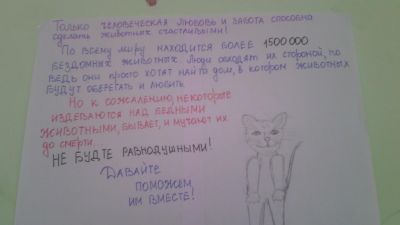 Только человеческая любовь и забота способна
сделать животных счастливыми!
По всему миру находится более 1500000
бездомных животных Люди обходят их стороной, но
ведь они просто хотят найти дом, в котором животных
будут оберегать и любить
Но к сожалению, некоторые
издеваются над бедными
животными, бывает, и мучают их
до смерти.
НЕ БУДТЕ РАВНОДУШНЫМИ!
Давайте
поможем
им вместе!